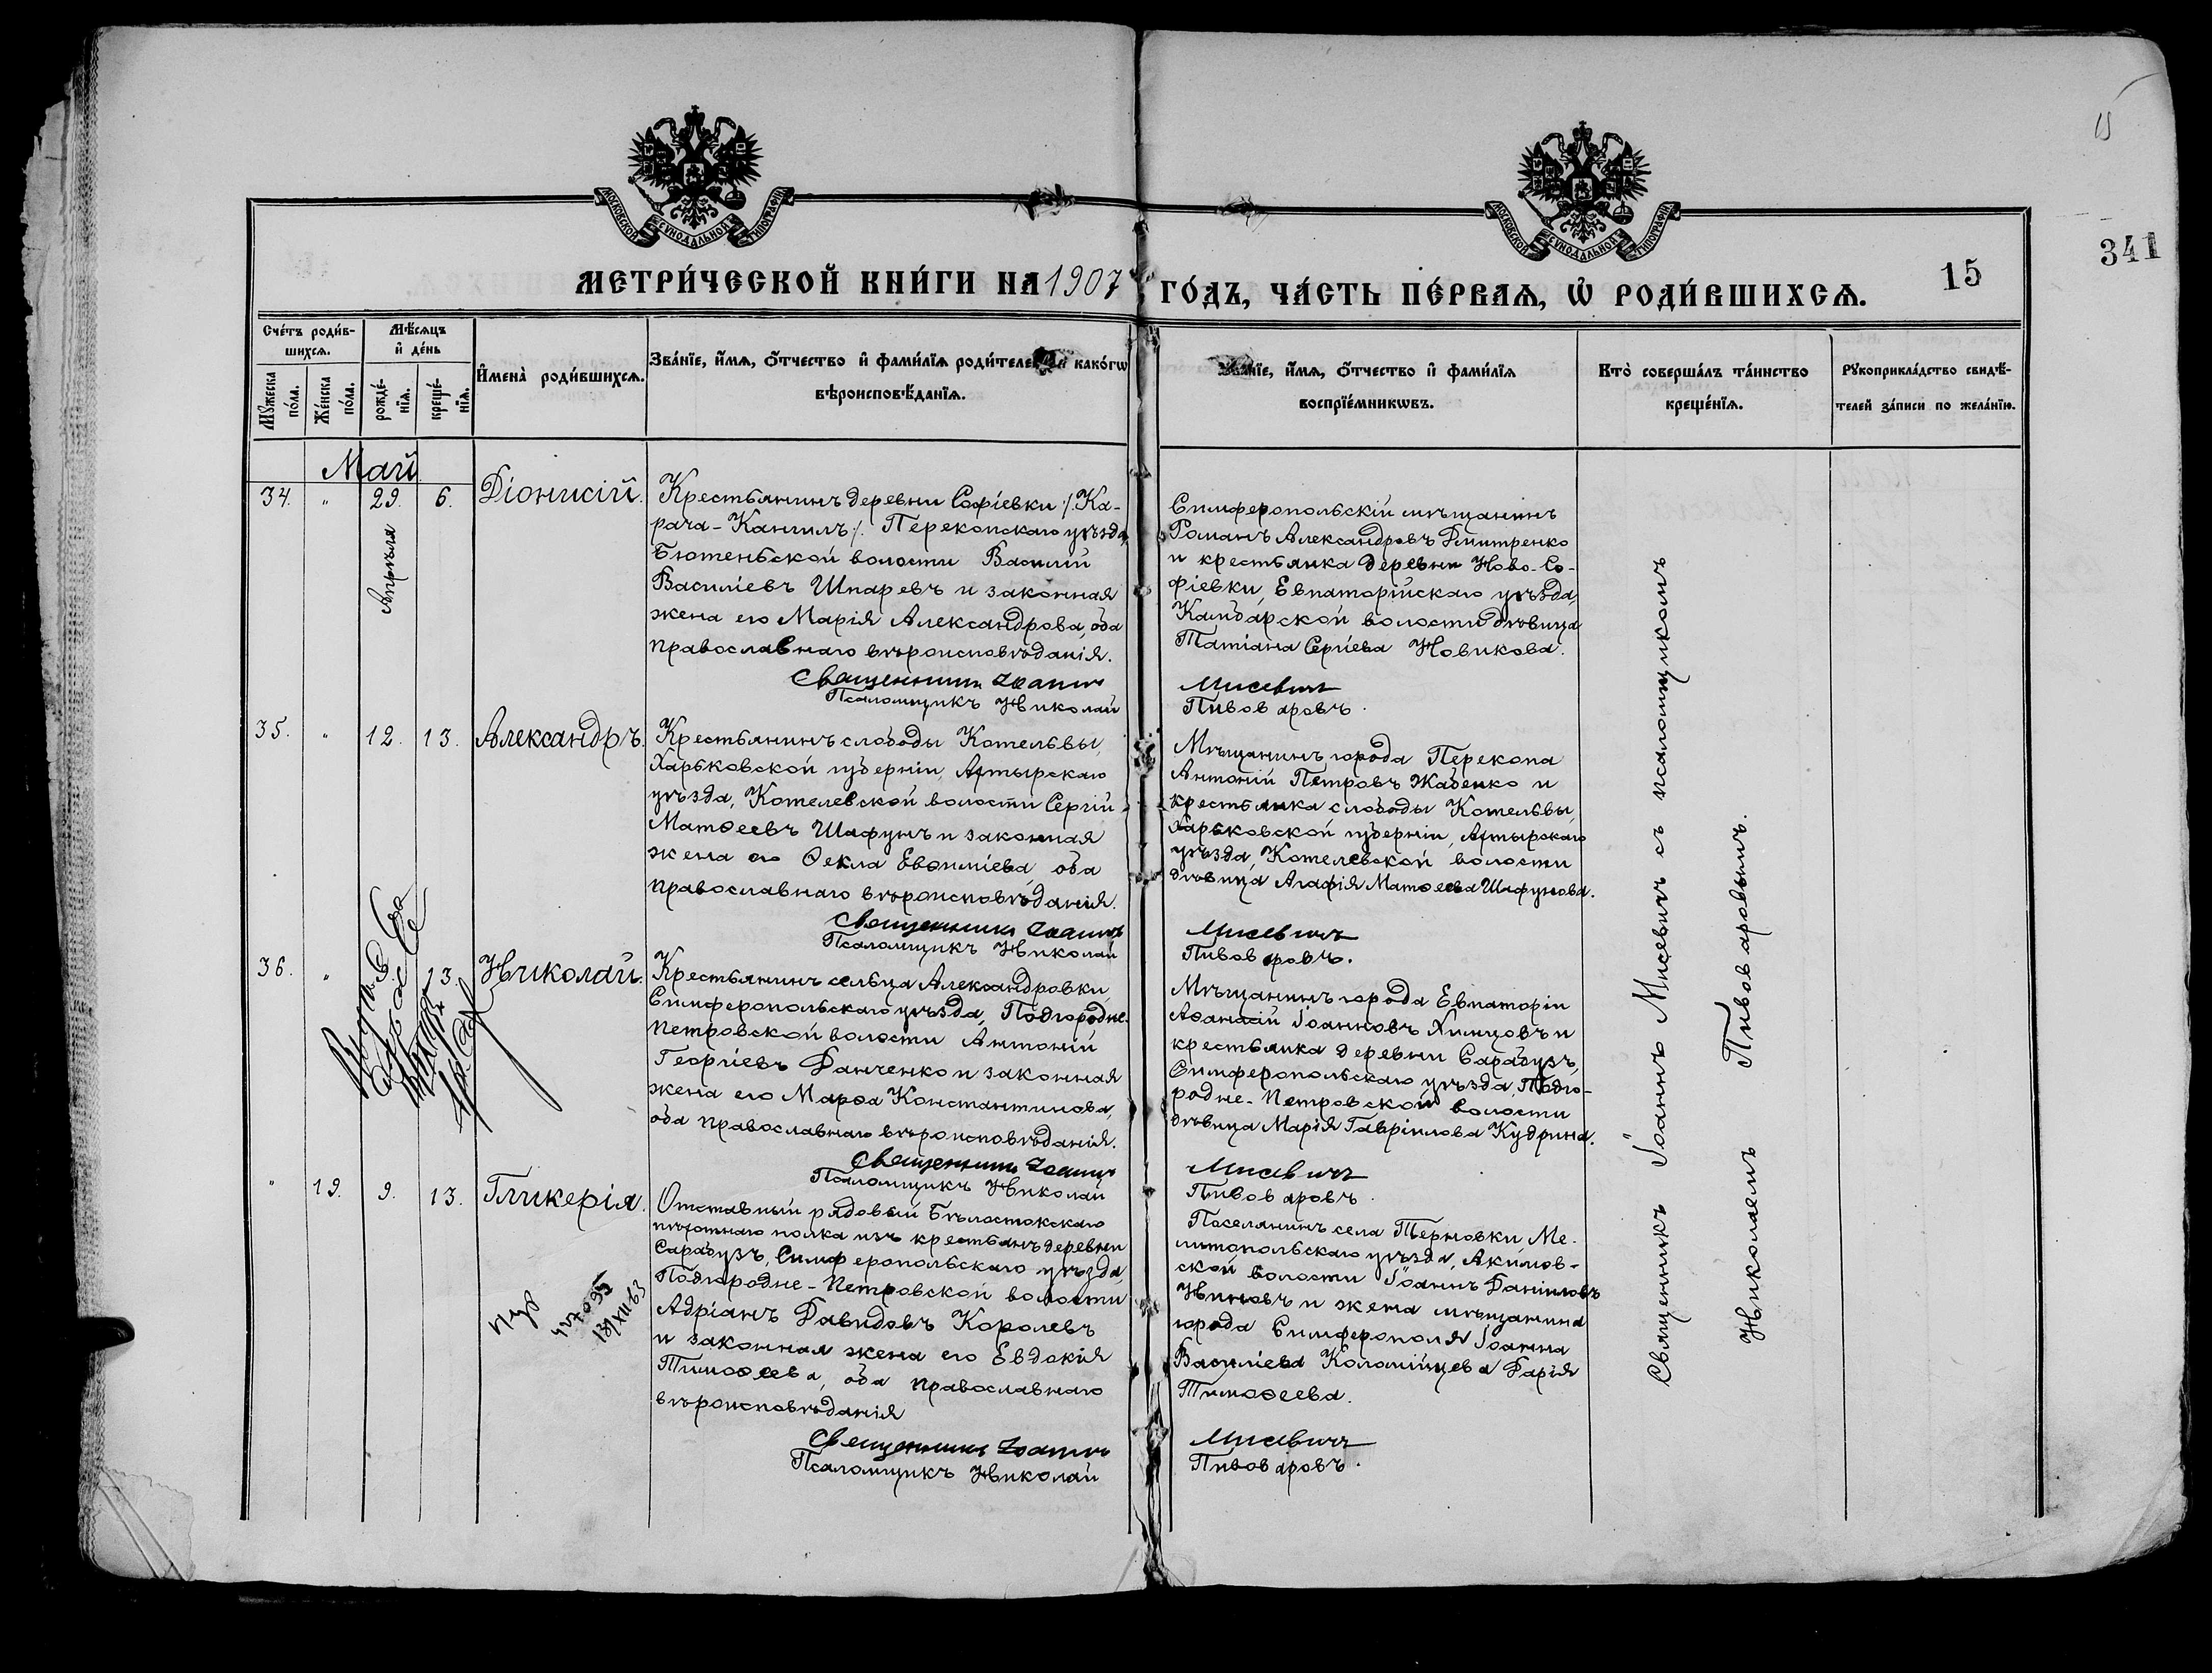 15
341
МОСКОВСКОЙ СѴНОДАЛЬНОЙ ТИПОГРАФІИ
МОСКОВСКОЙ СѴНОДАЛЬНОЙ ТИПОГРАФІИ
МЕТРИ́ЧЕСКОЙ КНИ́ГИ НА 1907 ГО́ДЪ, ЧА́СТЬ ПЕ́РВАѦ, Ѡ҆ РОДИ́ВШИХСѦ. 15
Сче́тъ роди́в-
шихсѧ.
Мꙋжеска по́ла.
Же́нска по́ла.
Мѣ́сѧцъ
и҆ де́нь
рожде́-
нїѧ.
креще́-
нїѧ.
И҆мена̀ роди́вшихсѧ.
Зва́нїе, и҆́мѧ, ѻ҆́тчество и҆ фами́лїѧ роди́теле како́гѡ
вѣроисповѣ́данїѧ.
нїе, и҆́мѧ, ѻ҆́тчество и҆ фами́лїѧ
воспрїе́мникѡвъ.
Кто̀ соверша́лъ та́инство
креще́нїѧ.
Рꙋкоприкла́дство свидѣ́-
телей за́писи по жела́нїю.
Май
34. " 29. 6. Діонисій.
Апрѣля
Крестьянинъ деревни Софіевки /. Ка-
рача-Кангилъ /. Перекопскаго уѣзда,
Бютеньской волости Василій
Василіевъ Шпаревъ и законная
жена его Марія Александрова, оба
православнаго вѣроисповѣданія.
Священникъ Іоаннъ
Псаломщикъ Николай
Симферопольскій мѣщанинъ
Романъ Александровъ Дмитренко
и крестьянка деревни Ново-Со-
фіевки, Евпаторійскаго уѣзда,
Камбарской волости дѣвица
Татіана Сергіева Новикова.
Мисевичъ
Пивоваровъ.
35. " 12. 13. Александръ.
Крестьянинъ слободы Котельвы,
Харьковской губерніи, Ахтырскаго
уѣзда, Котелевской волости Сергій
Матѳеевъ Шафунъ и законная
жена его Ѳекла Евѳиміева, оба
православнаго вѣроисповѣданія.
Священникъ Іоаннъ
Псаломщикъ Николай
Мѣщанинъ города Перекопа
Антоній Петровъ Жабенко и
крестьянка слободы Котельвы,
Харьковской губерніи, Ахтырскаго
уѣзда, Котелевской волости
дѣвица Агафія Матѳеева Шафунова.
Мисевичъ
Пивоваровъ.
36. " 13. Николай.
Крестьянинъ сельца Александровки,
Симферопольскаго уѣзда, Подгородне-
Петровской волости Антоній
Георгіевъ Данченко и законная
жена его Марѳа Константинова,
оба православнаго вѣроисповѣданія.
Священникъ Іоаннъ
Псаломщикъ Николай
Мѣщанинъ города Евпаторіи
Аѳанасій Іоанновъ Химцовъ и
крестьянка деревни Сарабузъ,
Симферопольскаго уѣзда, Подго-
родне-Петровской волости
дѣвица Марія Гавріилова Кудрина.
Мисевичъ
Пивоваровъ.
" 19. 9. 13. Гликерія.
Отставный рядовый Бѣлостокскаго
пѣхотнаго полка изъ крестьянъ деревни
Сарабузъ, Симферопольскаго уѣзда,
Подгородне-Петровской волости
Адріанъ Давидовъ Королевъ
и законная жена его Евдокія
Тимоѳеева, оба православнаго
вѣроисповѣданія
Священникъ Іоаннъ
Псаломщикъ Николай
Поселянинъ села Терновки, Ме-
литопольскаго уѣзда, Акимов-
ской волости Іоаннъ Даніиловъ
Ниновъ и жена мѣщанина
города Симферополя Іоанна
Василіева Коломійцева Дарія
Тимоѳеева.
Мисевичъ
Пивоваровъ.
Священникъ Іоаннъ Мисевичъ съ псаломщикомъ
Николаемъ Пивоваровымъ.